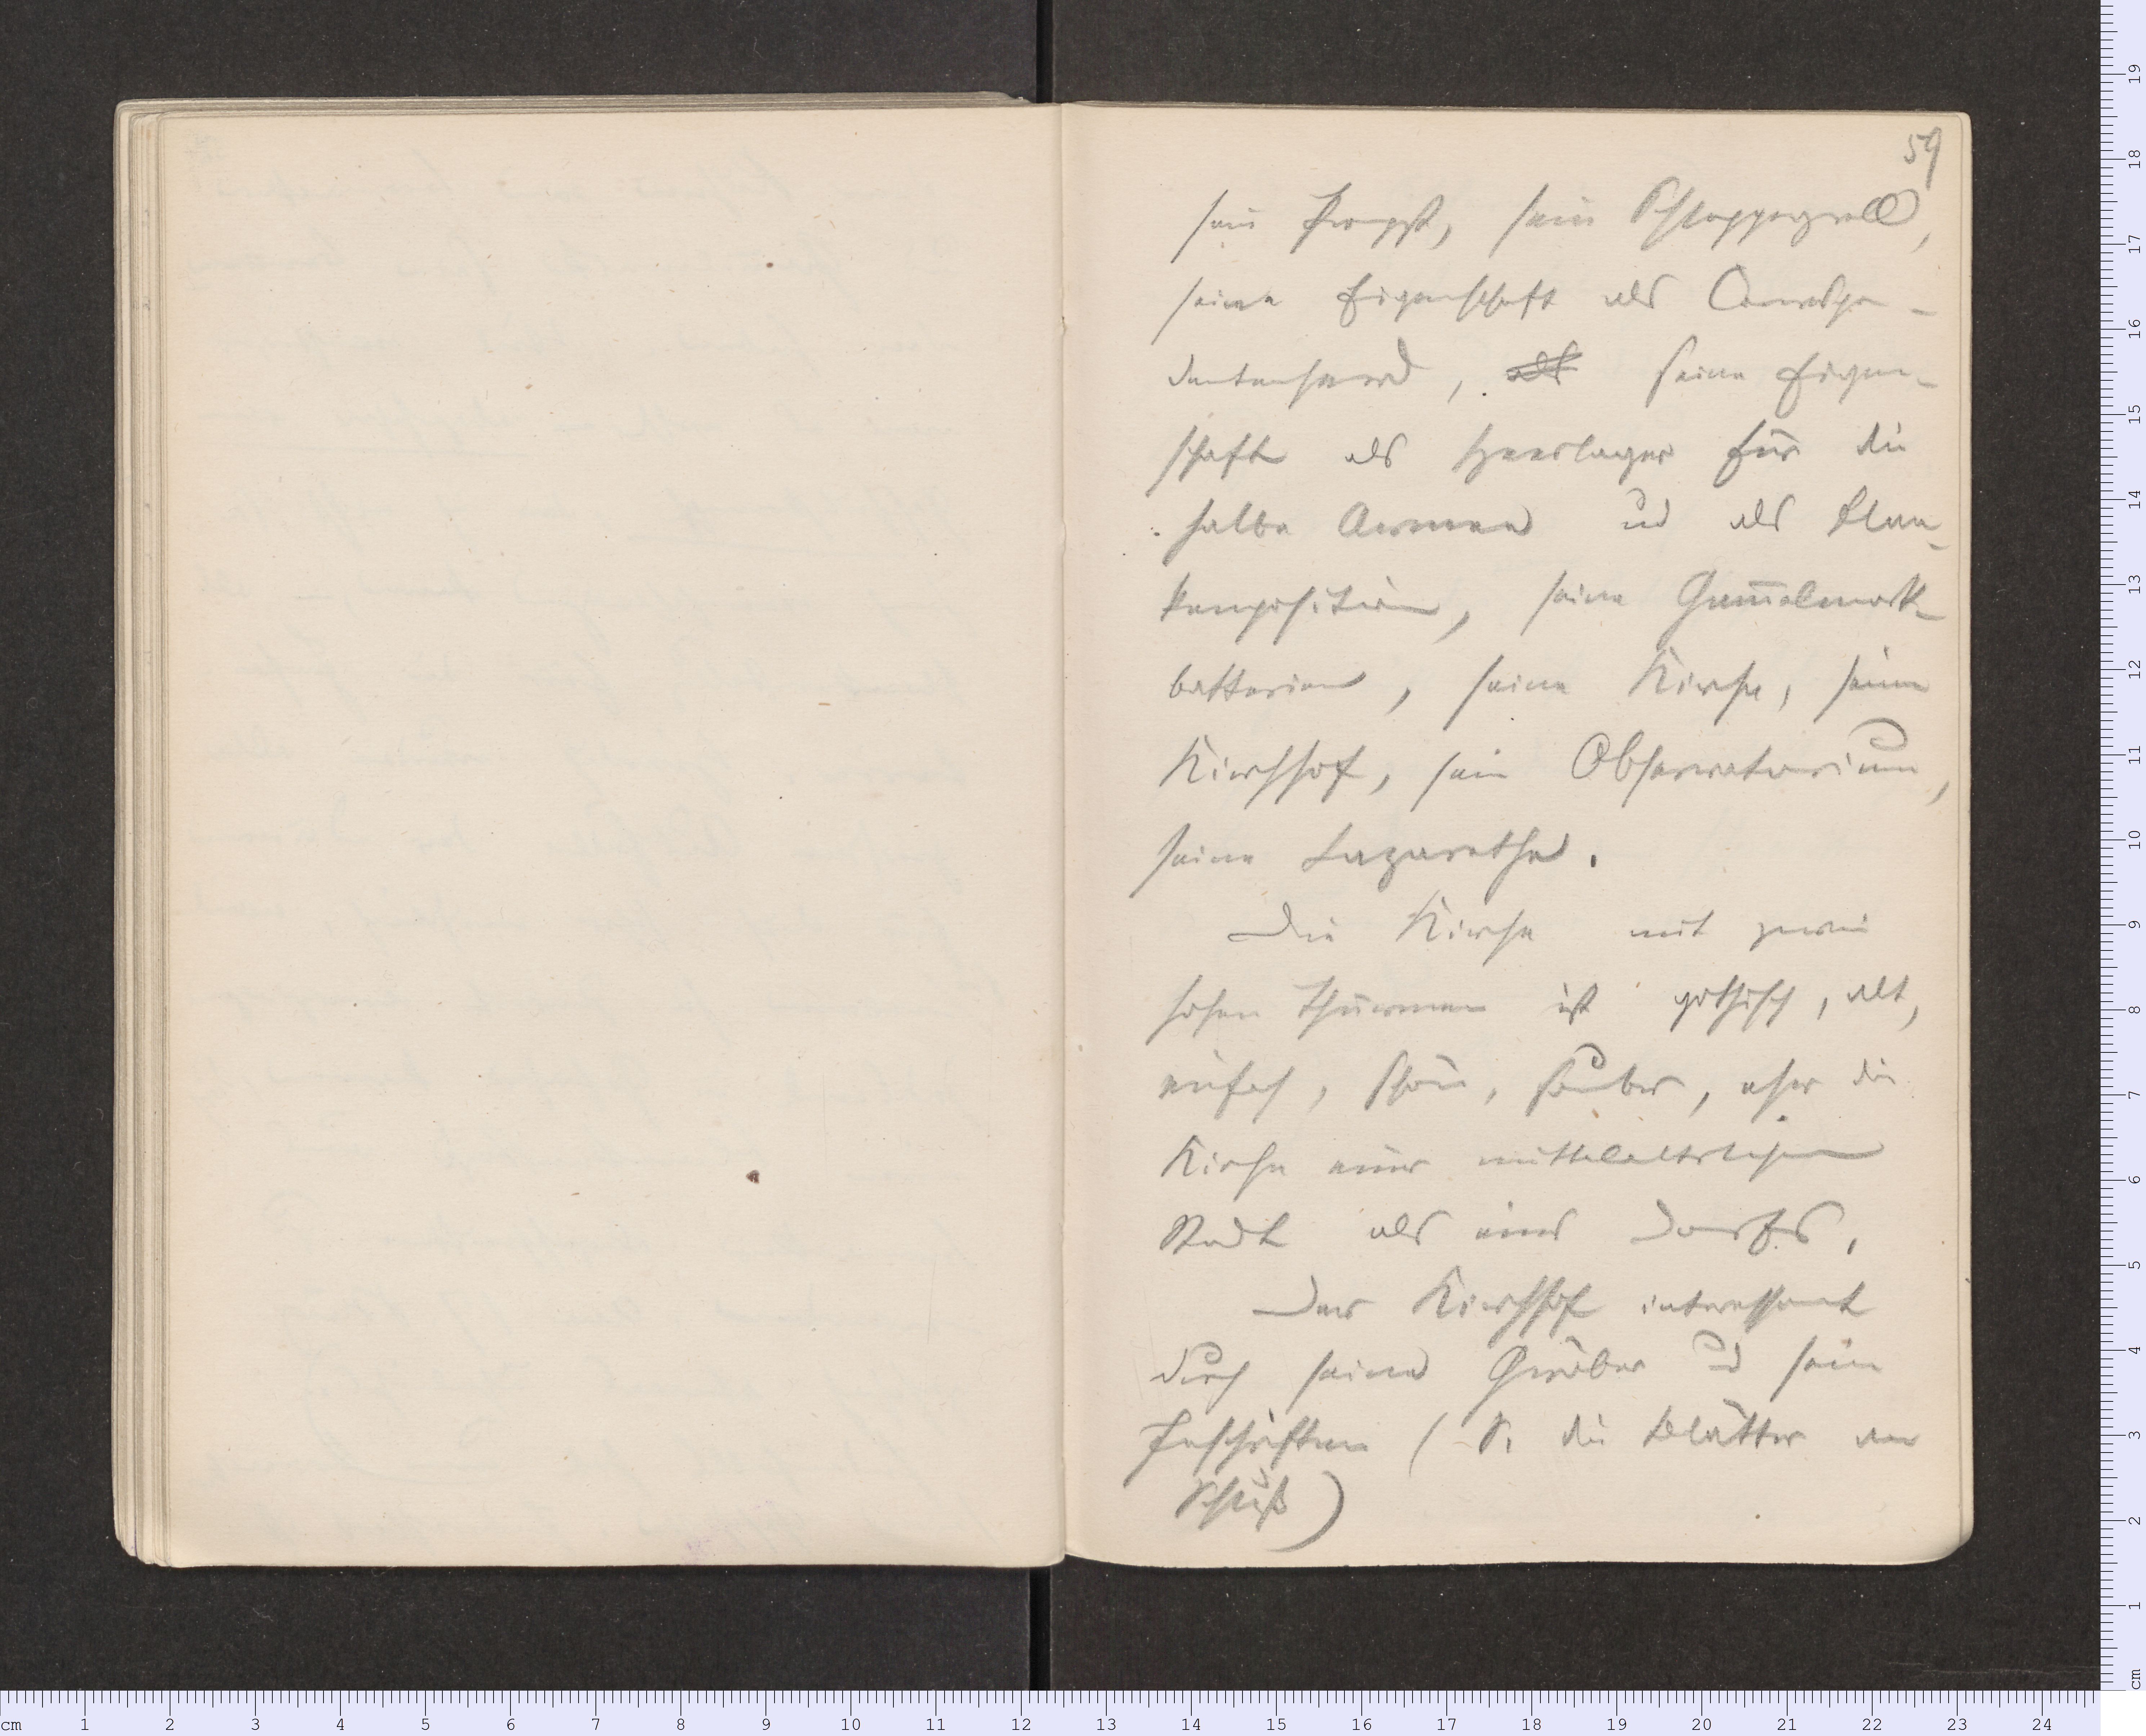 59
sein Propst, sein Schleppegrell,
seine Eigenschaft als Correspon-
dentenherd, als seine Eigen-
schaft als Heerlager für die
halbe Armee und als Flan-
kenposition, seine Gam̅elmark-
batterien, seine Kirche, seinen
Kirchhof, sein Observatorium,
seine Lazarethe.
Die Kirche mit zwei
hohen Thürmen ist gothisch, alt,
einfach, schön, sauber, eher die
Kirche einer mittelalterlichen
Stadt als eines Dorfes.
Der Kirchhof interessant
durch seine Gräber und seine
Inschriften (S. die Blätter am
Schluß)
cm 1 2 3 4 5 6 7 8 9 10 11 12 13 14 15 16 17 18 19 20 21 22 23 24
cm 1 2 3 4 5 6 7 8 9 10 11 12 13 14 15 16 17 18 19